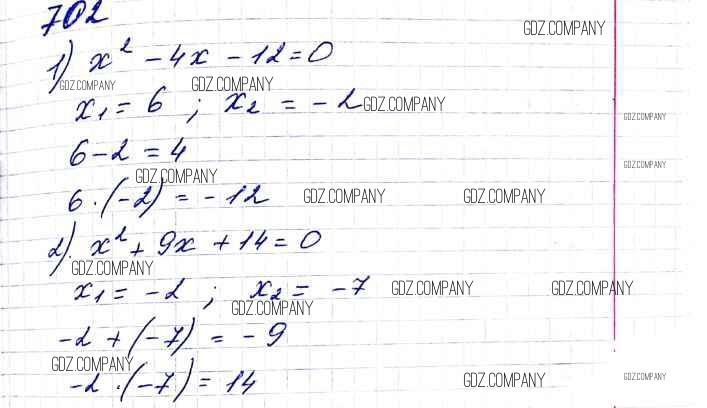 702
GDZ.COMPANY
1) x² - 4x - 12 = 0
GDZ.COMPANY GDZ.COMPANY
x₁ = 6 ; x₂ = -2 GDZ.COMPANY
GDZ.COMPANY
6 - 2 = 4
GDZ.COMPANY
GDZ.COMPANY
6 · (-2) = -12 GDZ.COMPANY GDZ.COMPANY
2) x² + 9x + 14 = 0
GDZ.COMPANY
x₁ = -2 ; x₂ = -7 GDZ.COMPANY GDZ.COMPANY
GDZ.COMPANY
-2 + (-7) = -9
GDZ.COMPANY
-2 · (-7) = 14 GDZ.COMPANY GDZ.COMPANY